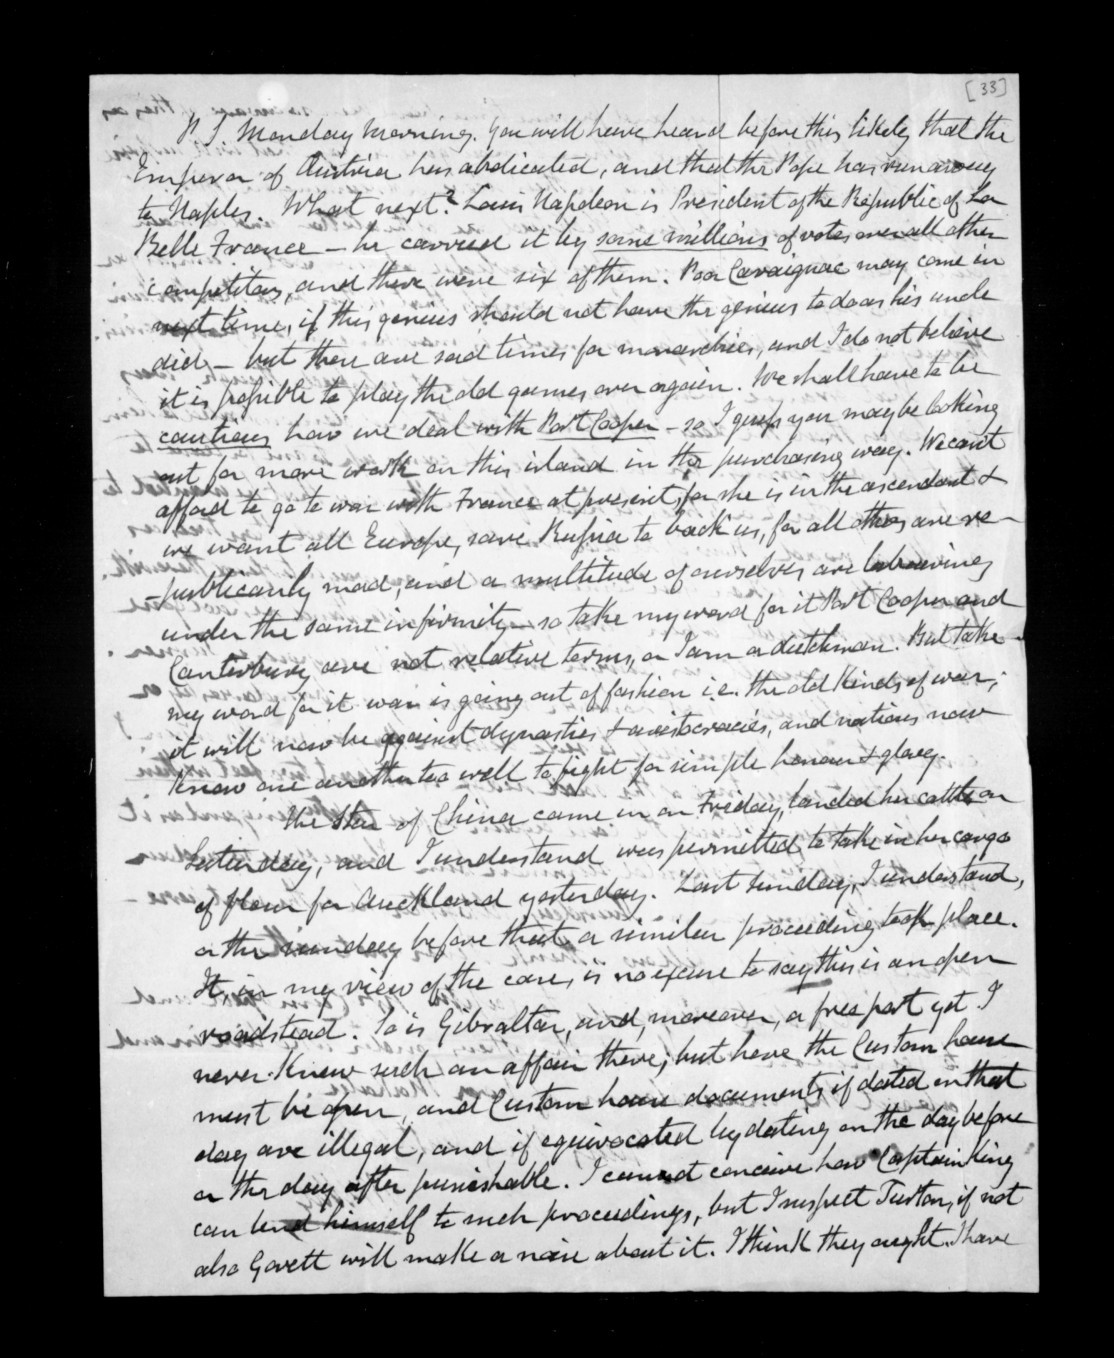 [33]
P.S. Monday Morning. You will have heard before this likely that the
Emperor of Austria has abdicated, and that the Pope has run away
to Naples. What next? Louis Napoleon is President of the Republic of La
Belle France – he carried it by some millions of votes over all other
competitors, and there were six of them. Poor Cavaignac may come in
next time, if this genius should not have the genius to do as his uncle
did – but these are sad times for monarchies, and I do not believe
it is possible to play the old games over again. We shall have to be
cautious how we deal with Port Cooper – so I guess you may be looking
out for more work on this island in the purchasing way. We can't
afford to go to war with France at present, for she is in the ascendant &
we want all Europe, save Russia to back us, for all others are re-
-publicanly mad, and a multitude of ourselves are labouring
under the same infirmity – so take my word for it Port Cooper and
Canterbury are not relative terms, or I am a dutchman. But take
my word for it war is going out of fashion i.e. the old kinds of war;
it will now be against dynasties & aristocracies, and nations now
know one another too well to fight for simple honour & glory.
The Star of China came in on Friday, landed her cattle on
Saturday, and I understand was permitted to take in her cargo
of flour for Auckland yesterday. Last Sunday, I understand,
or the sunday before that a similar proceeding took place.
It, in my view of the case, is no excuse to say this is an open
roadstead. So is Gibraltar, and, moreover, a free port yet I
never knew such an affair there; but here the Custom house
must be open, and Custom house documents if dated on that
day are illegal, and if equivocated by dating on the day before
or the day after punishable. I cannot conceive how Captain King
can lend himself to such proceedings, but I suspect Turton, if not
also Govett will make a noise about it. I think they ought. I have